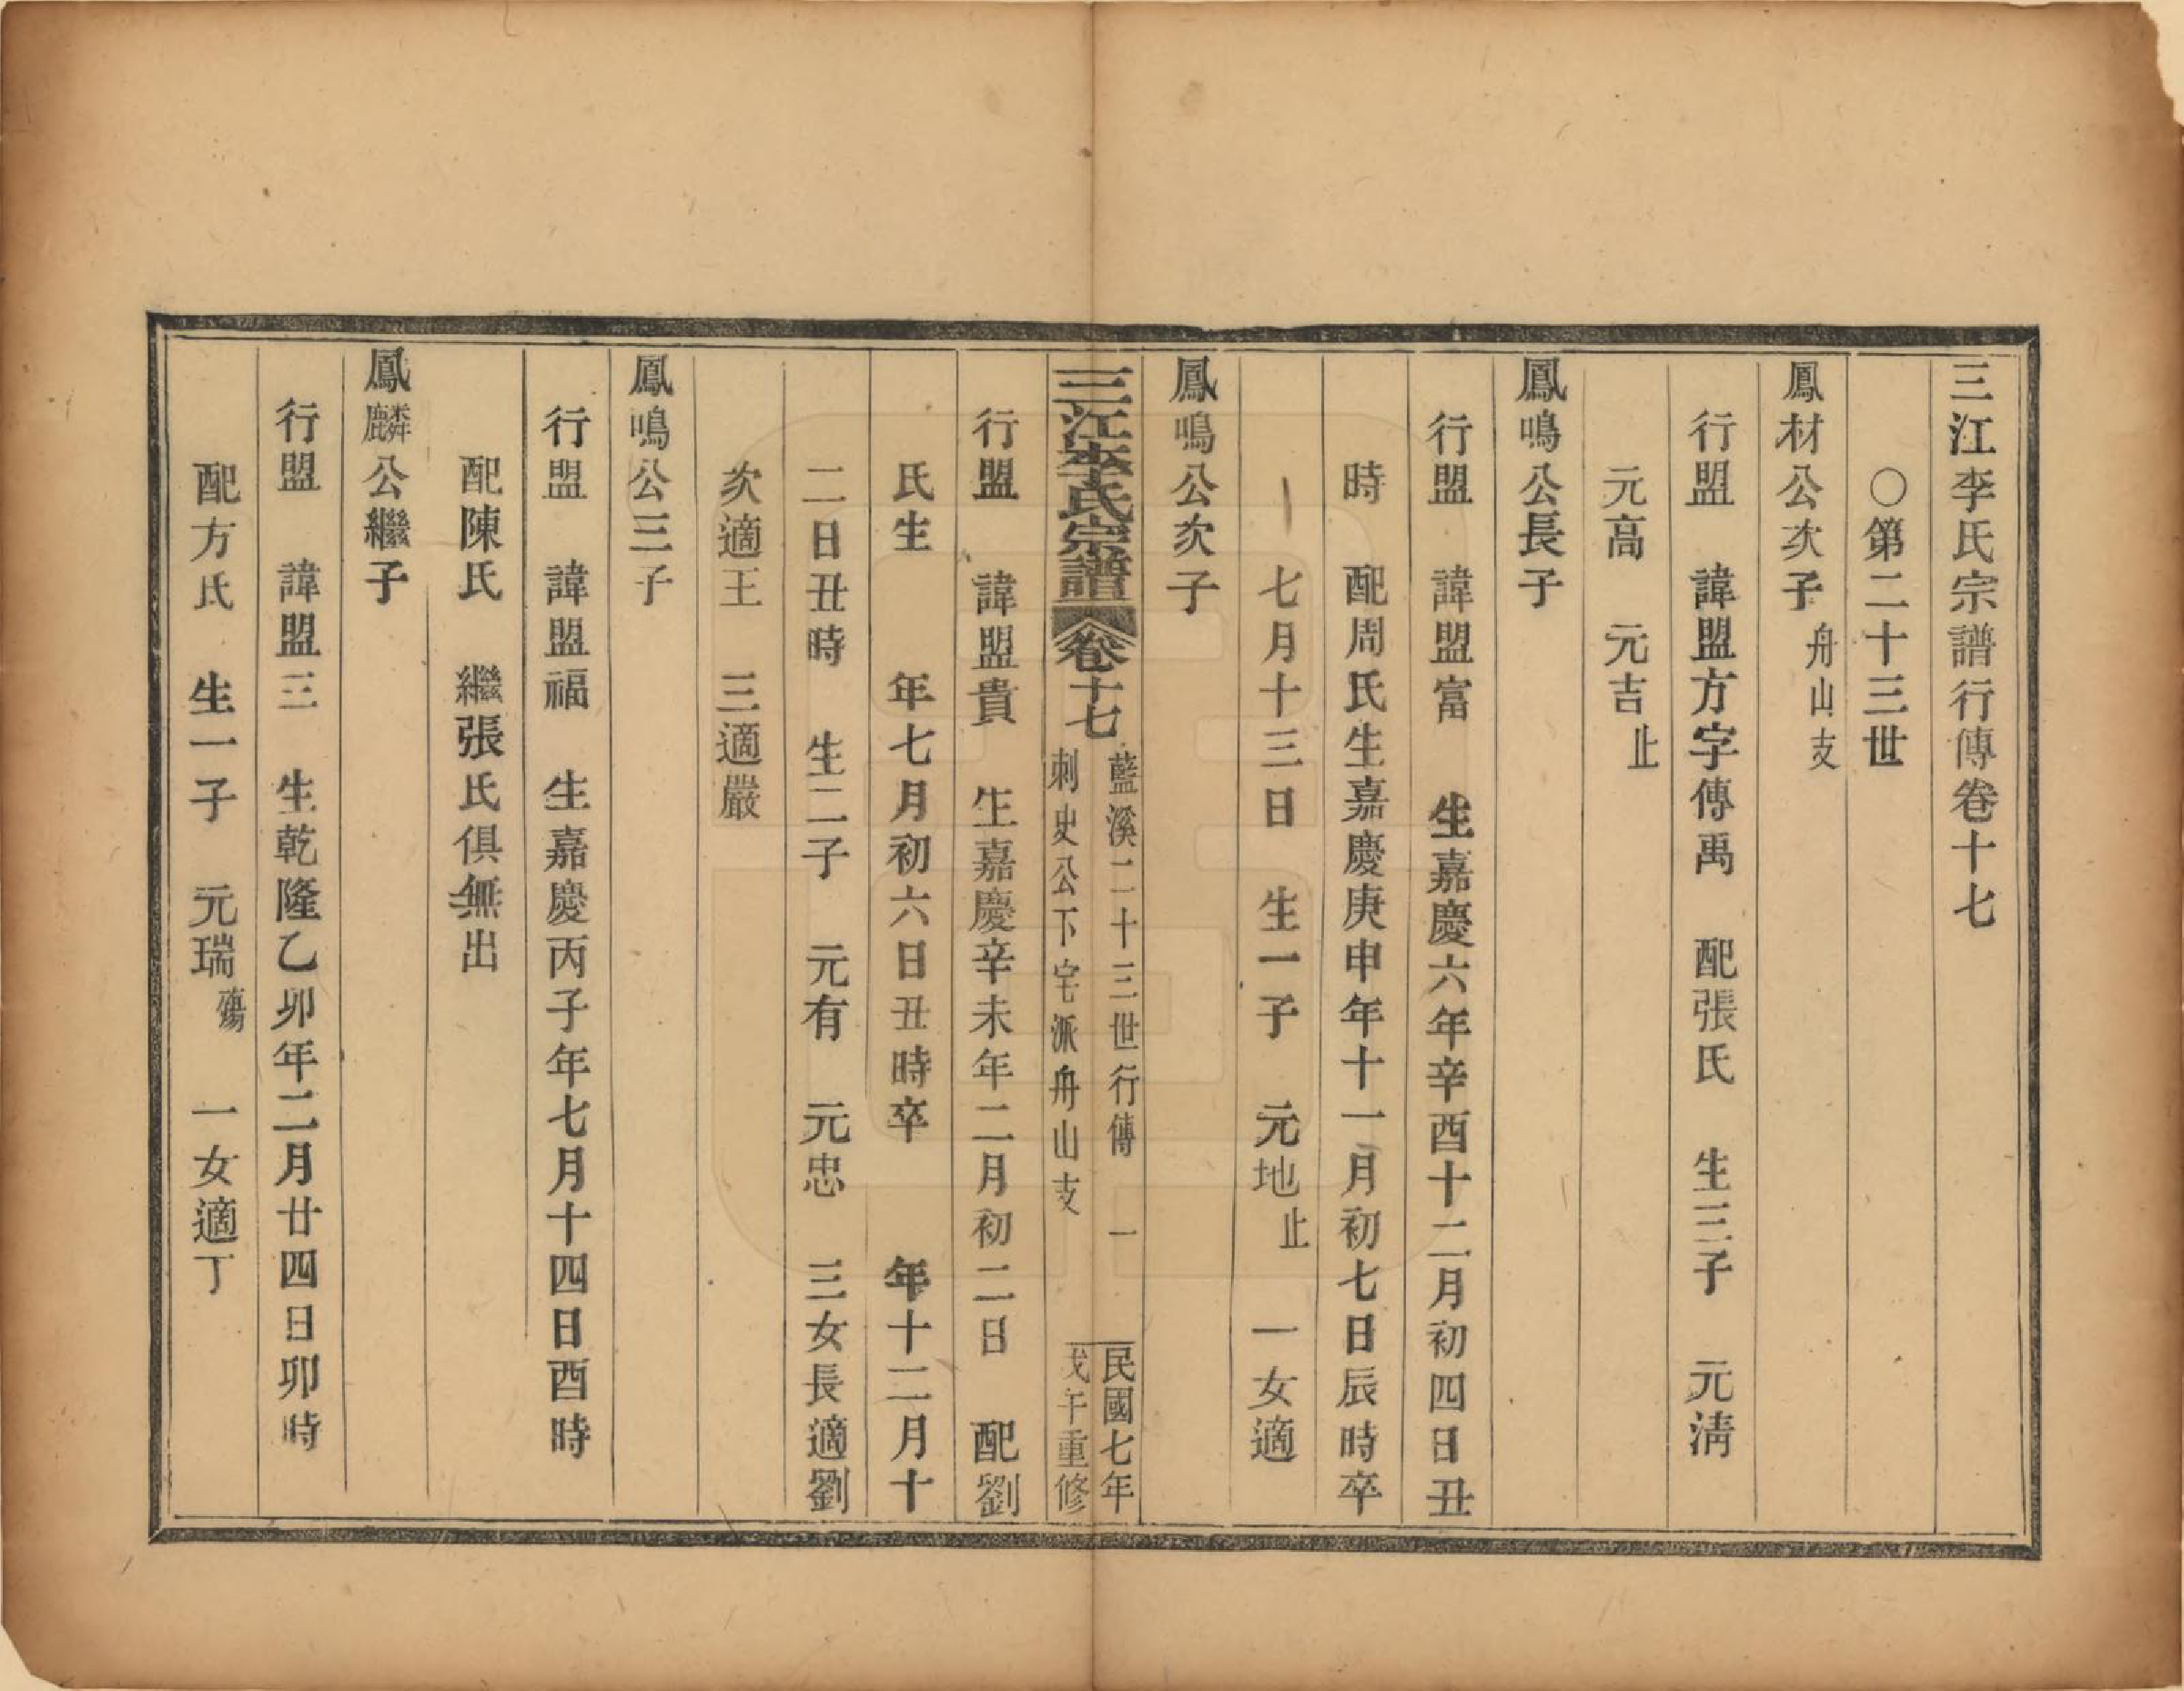 三江李氏宗譜行傳卷十七
○第二十三世
鳳材公次子 舟山支
行盟 諱盟方字傳禹 配張氏 生三子 元清
元高 元吉 止
鳳鳴公長子
行盟 諱盟富 生嘉慶六年辛酉十二月初四日丑
時 配周氏生嘉慶庚申年十一月初七日辰時卒
七月十三日 生一子 元地 止 一女適
鳳鳴公次子
三江李氏宗譜 卷十七 藍溪二十三世行傳 一 民國七年
刺史公下宅派舟山支 戊午重修
行盟 諱盟貴 生嘉慶辛未年二月初二日 配劉
氏生 年七月初六日丑時卒 年十二月十
二日丑時 生二子 元有 元忠 三女長適劉
次適王 三適嚴
鳳鳴公三子
行盟 諱盟福 生嘉慶丙子年七月十四日酉時
配陳氏 繼張氏俱無出
鳳麟公繼子
行盟 諱盟三 生乾隆乙卯年二月廿四日卯時
配方氏 生一子 元瑞 殤 一女適丁